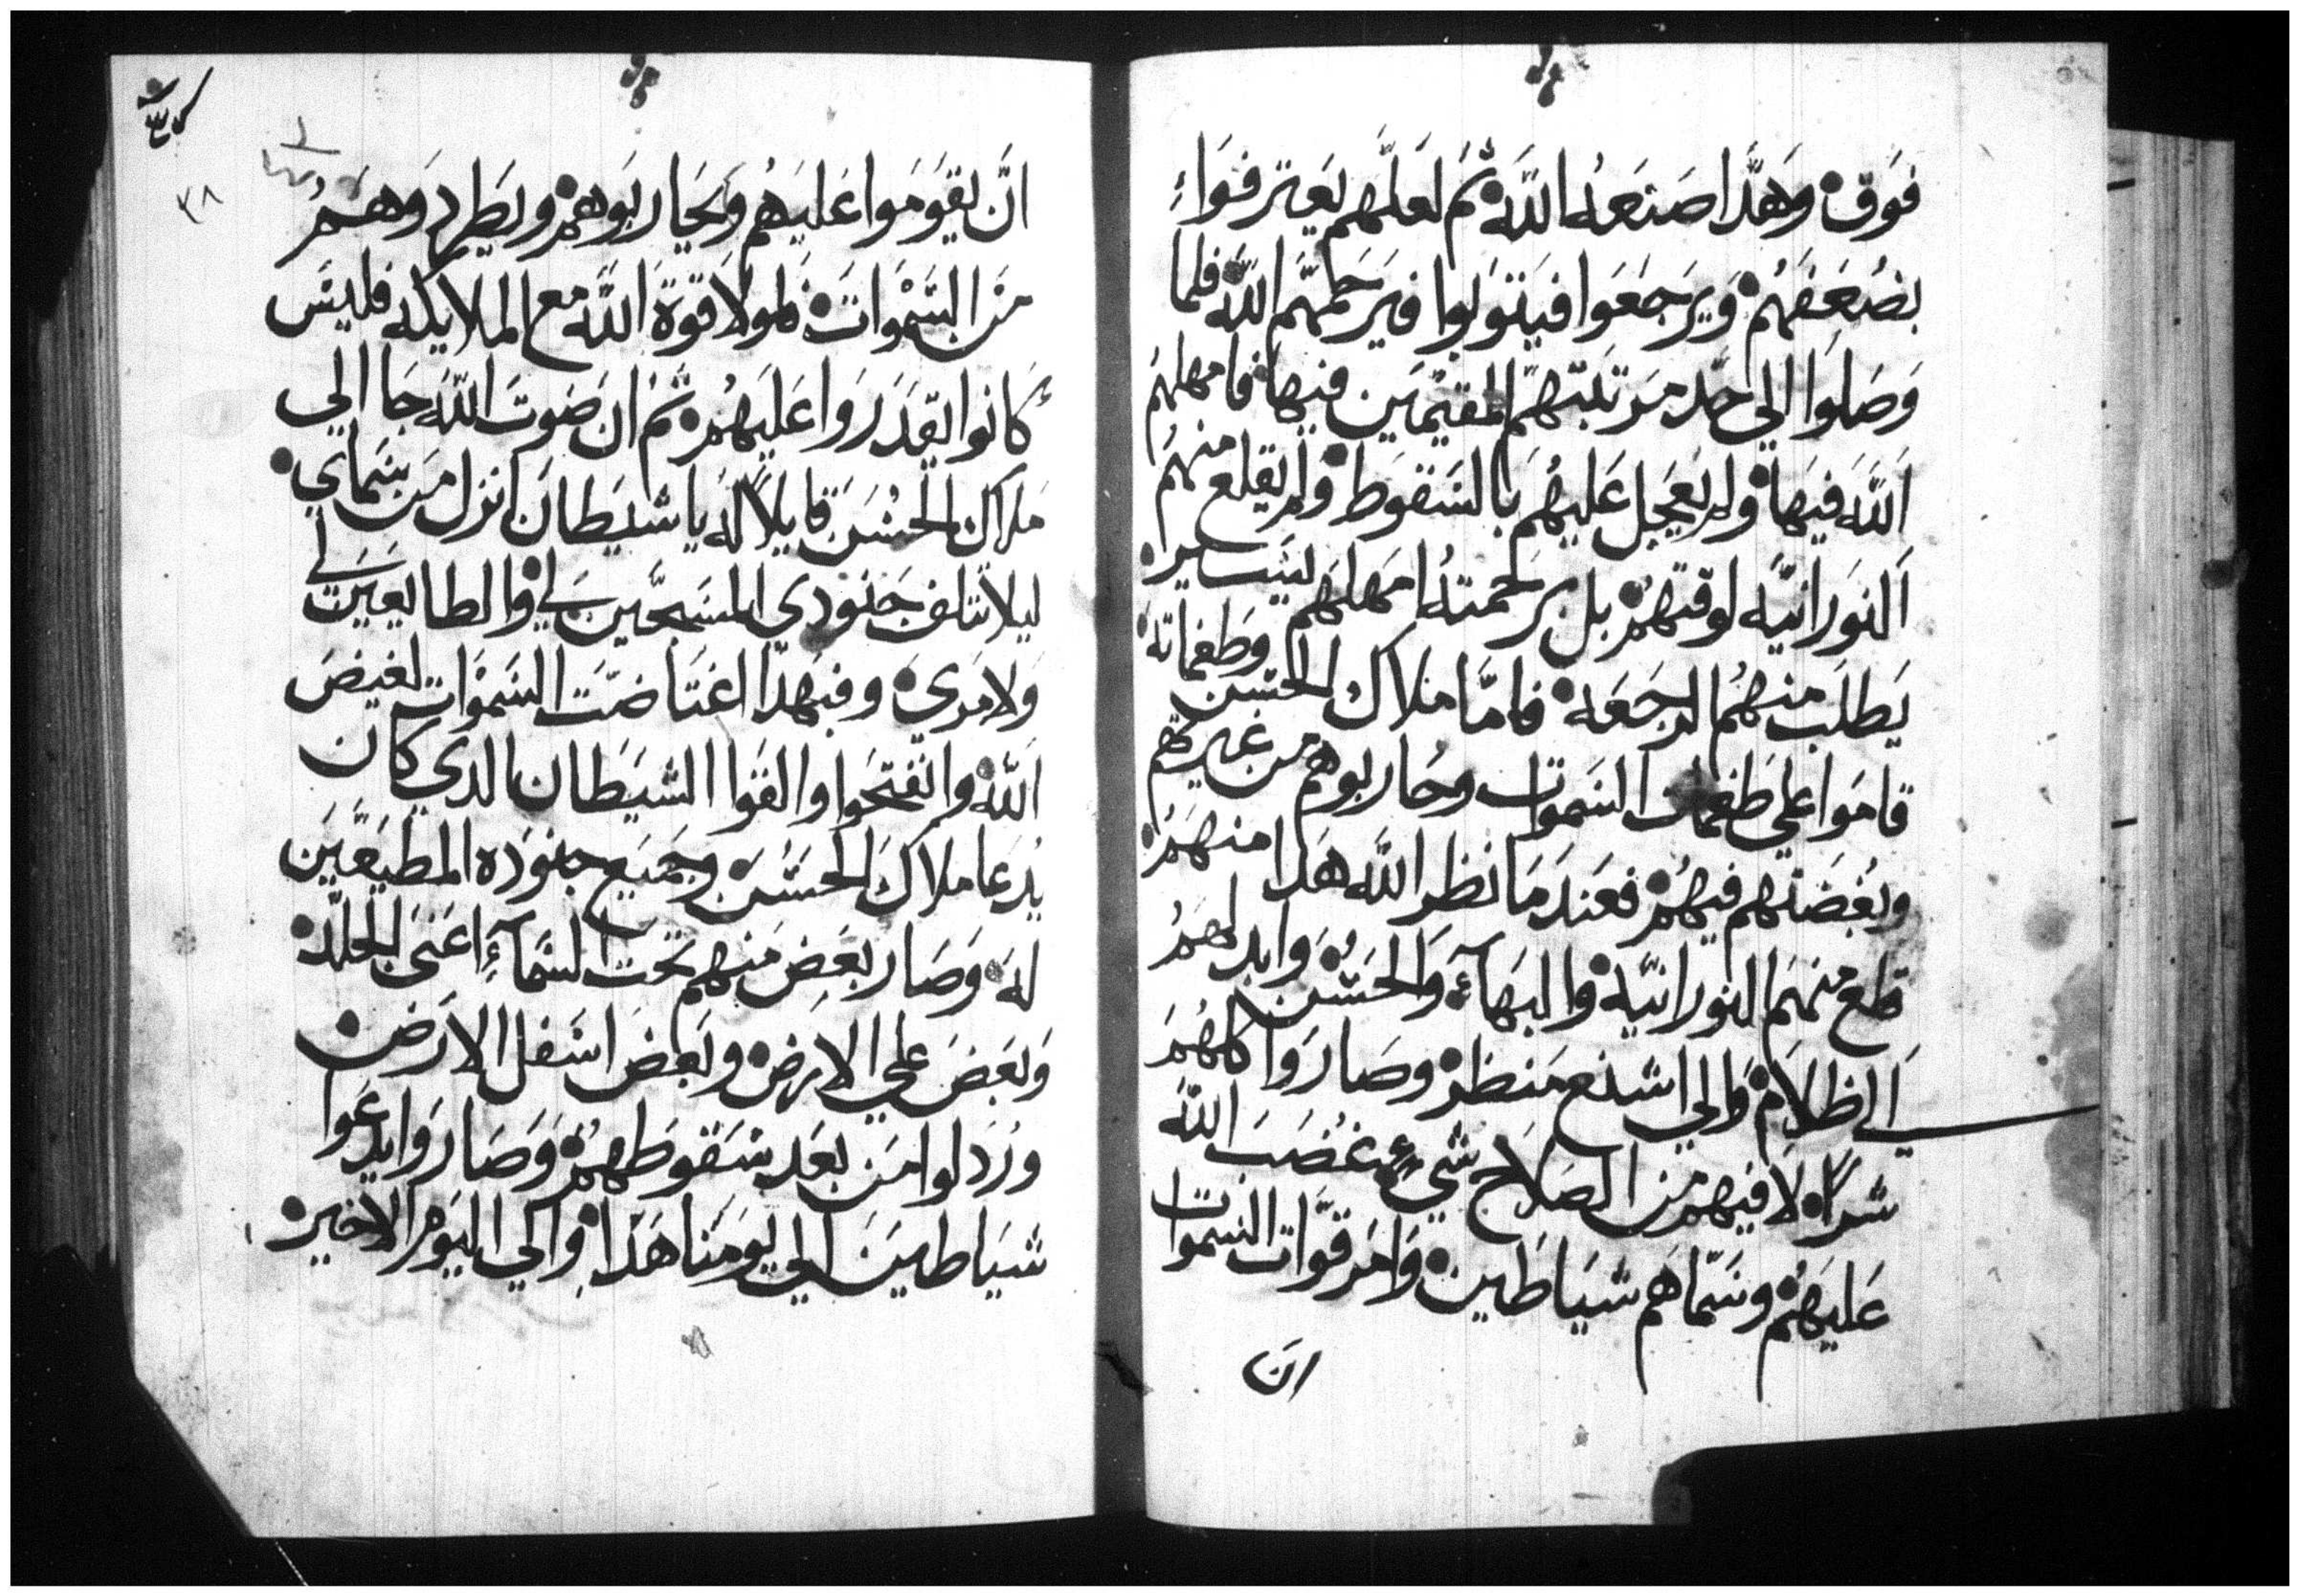 فوق وهذا صنعه الله ثم لعلهم يعترفواء
بضعفهم ويرجعوا فيتوبوا فيرحمهم الله فلما
وصلوا الي حد مرتبتهم المقيمين فيها فامهلهم
الله فيها ولم يعجل عليهم بالسقوط ولم يقلع منهم
النورانيه لوقتهم بل برحمته امهلهم ليسير
يطلب منهم الرجعه فاما ملاك الحسن وطغماته
قاموا علي طغمات السموات وحاربوهم من غيرتهم
وبغضتهم فيهم فعند ما نظر الله هدا منهم
قلع منهم النورانيه والبهآء والحسن وابدلهم
الي الظلام والي اشنع منظر وصاروا كلهم
شرا لا فيهم من الصلاح شيء غضب الله
عليهم وسماهم شياطين وامر قوات السموات
ان
٣٨
ان يقوموا عليهم ويحاربوهم ويطردوهم
من السموات فلولا قوة الله مع الملايكه فليس
كانوا يقدروا عليهم ثم ان صوت الله جا الي
ملاك الحسن قايلا له يا شيطان انزل من سماي
ليلا تتلف جنودي المسبحين لي والطايعين لي
ولامري وفبهدا اغتاضت السموات لغيض
الله وانفتحوا والقوا الشيطان الدي كان
يدعا ملاك الحسن وجميع جنوده المطيعين
له وصار بعض منهم تحت السمآء اعني الجلد
وبعض علي الارض وبعض اسفل الارض
ورذلوا من بعد سقوطهم وصاروا يدعوا
شياطين الي يومنا هدا والي اليوم الاخير